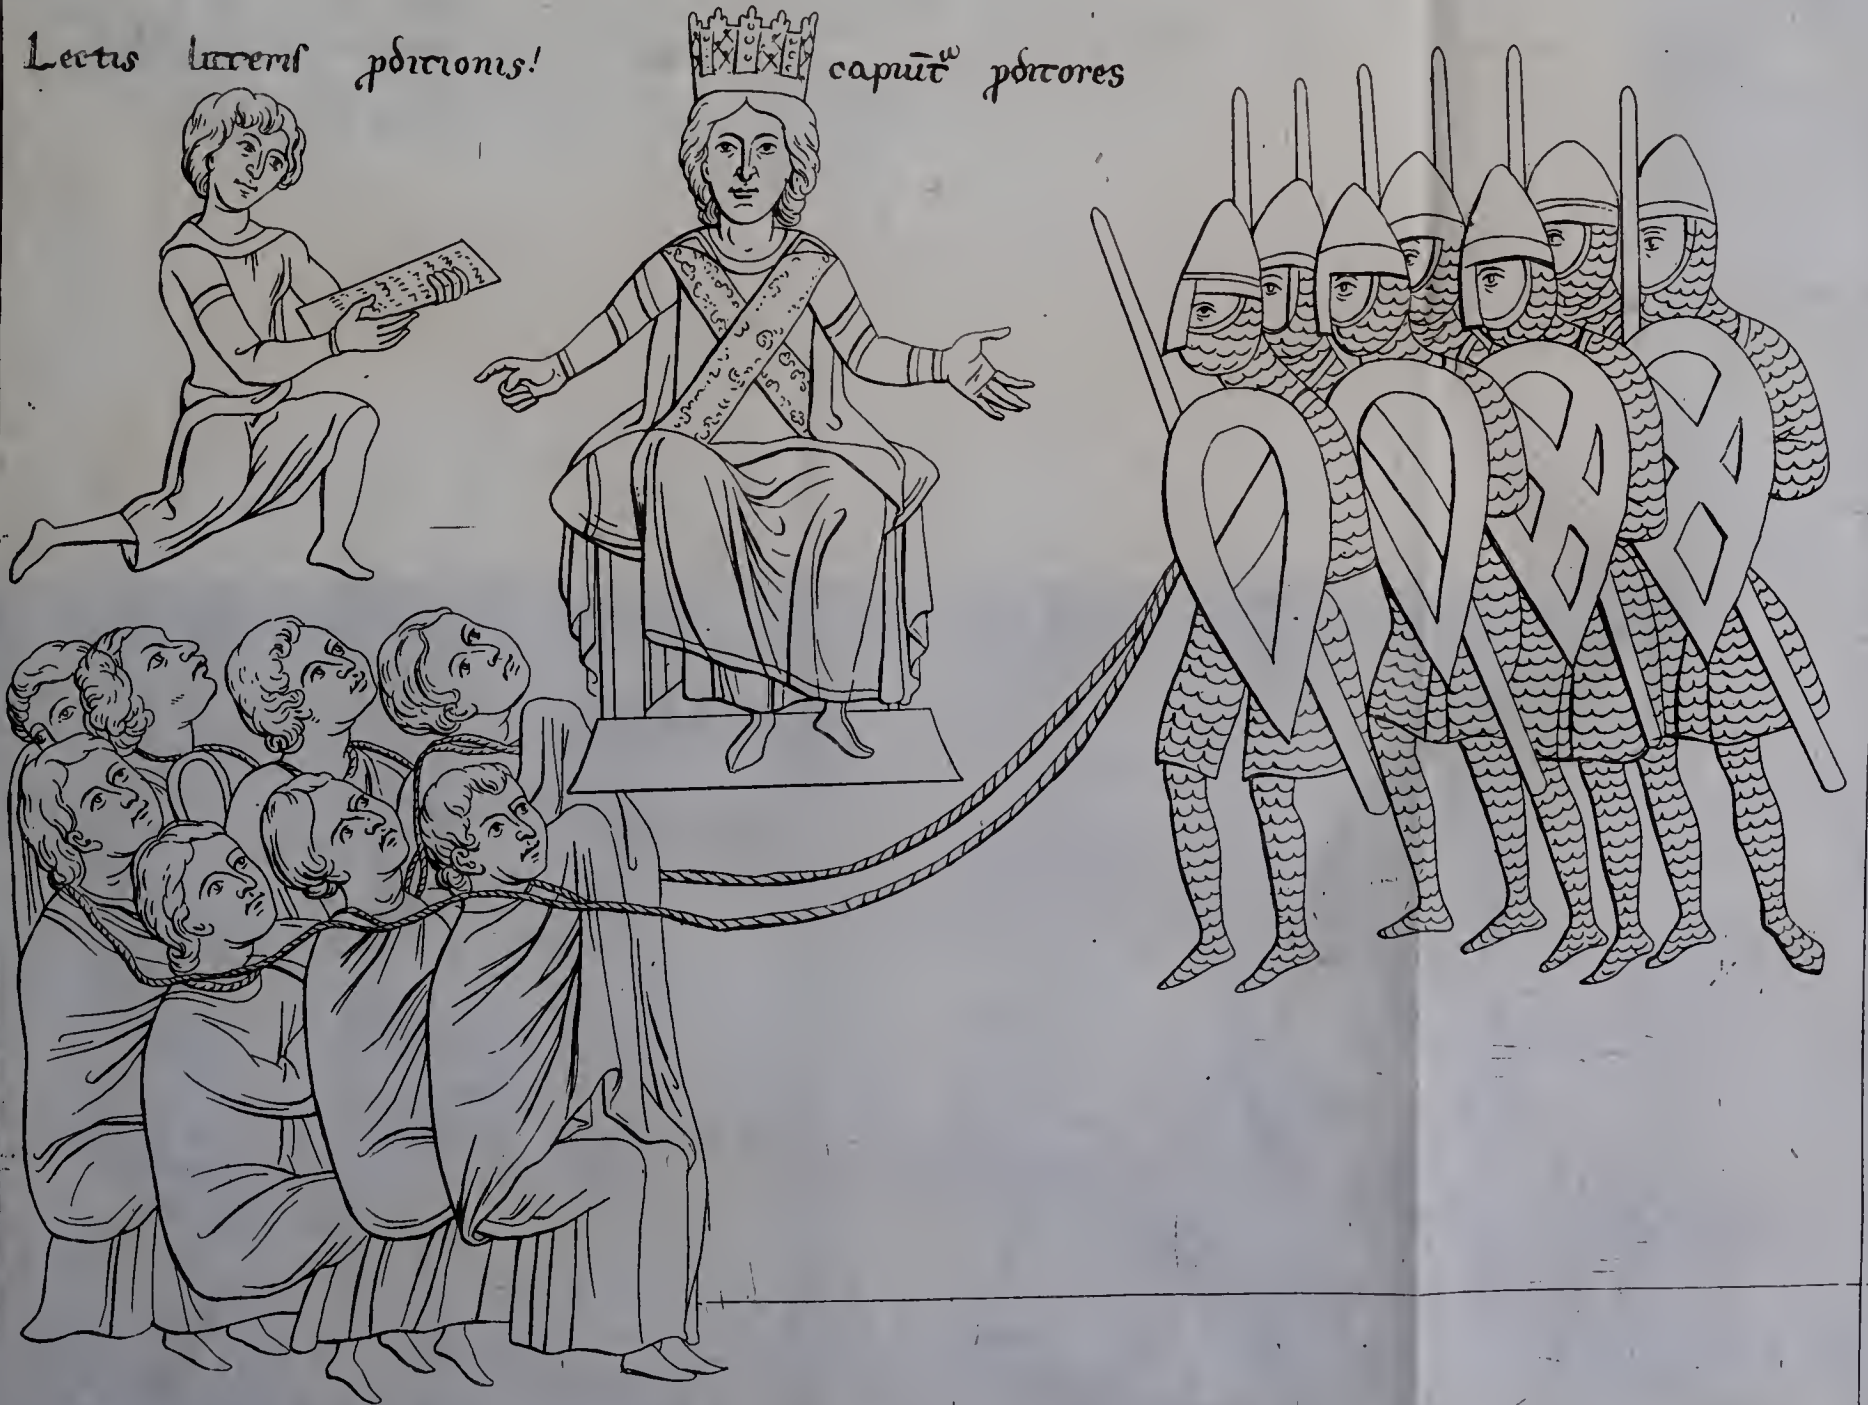 Lectis litteris ꝓditionis! capiūt᷑ ꝓditores